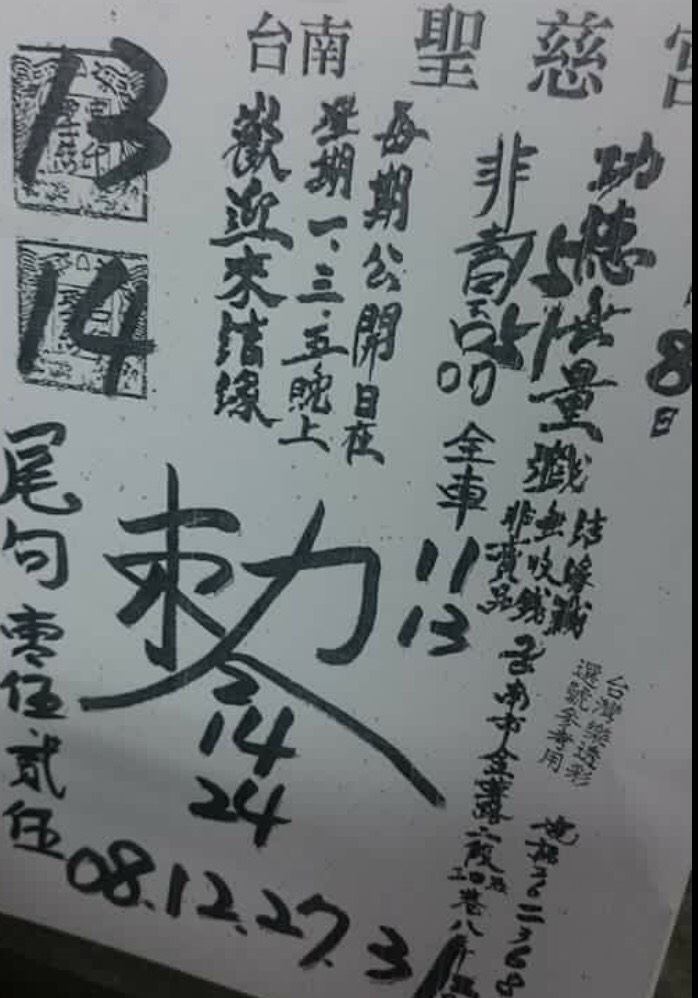 台南 聖慈宮
功德無量
8日
非賣品
51
51
每期公開日在
星期一、三、五晚上
歡迎來結緣
13
14
全車
11
13
結緣籤
無收錢
非賣品
台灣樂透彩
選號參考用
敕
2
14
24
尾句
零伍
貳伍
08.12.27.31